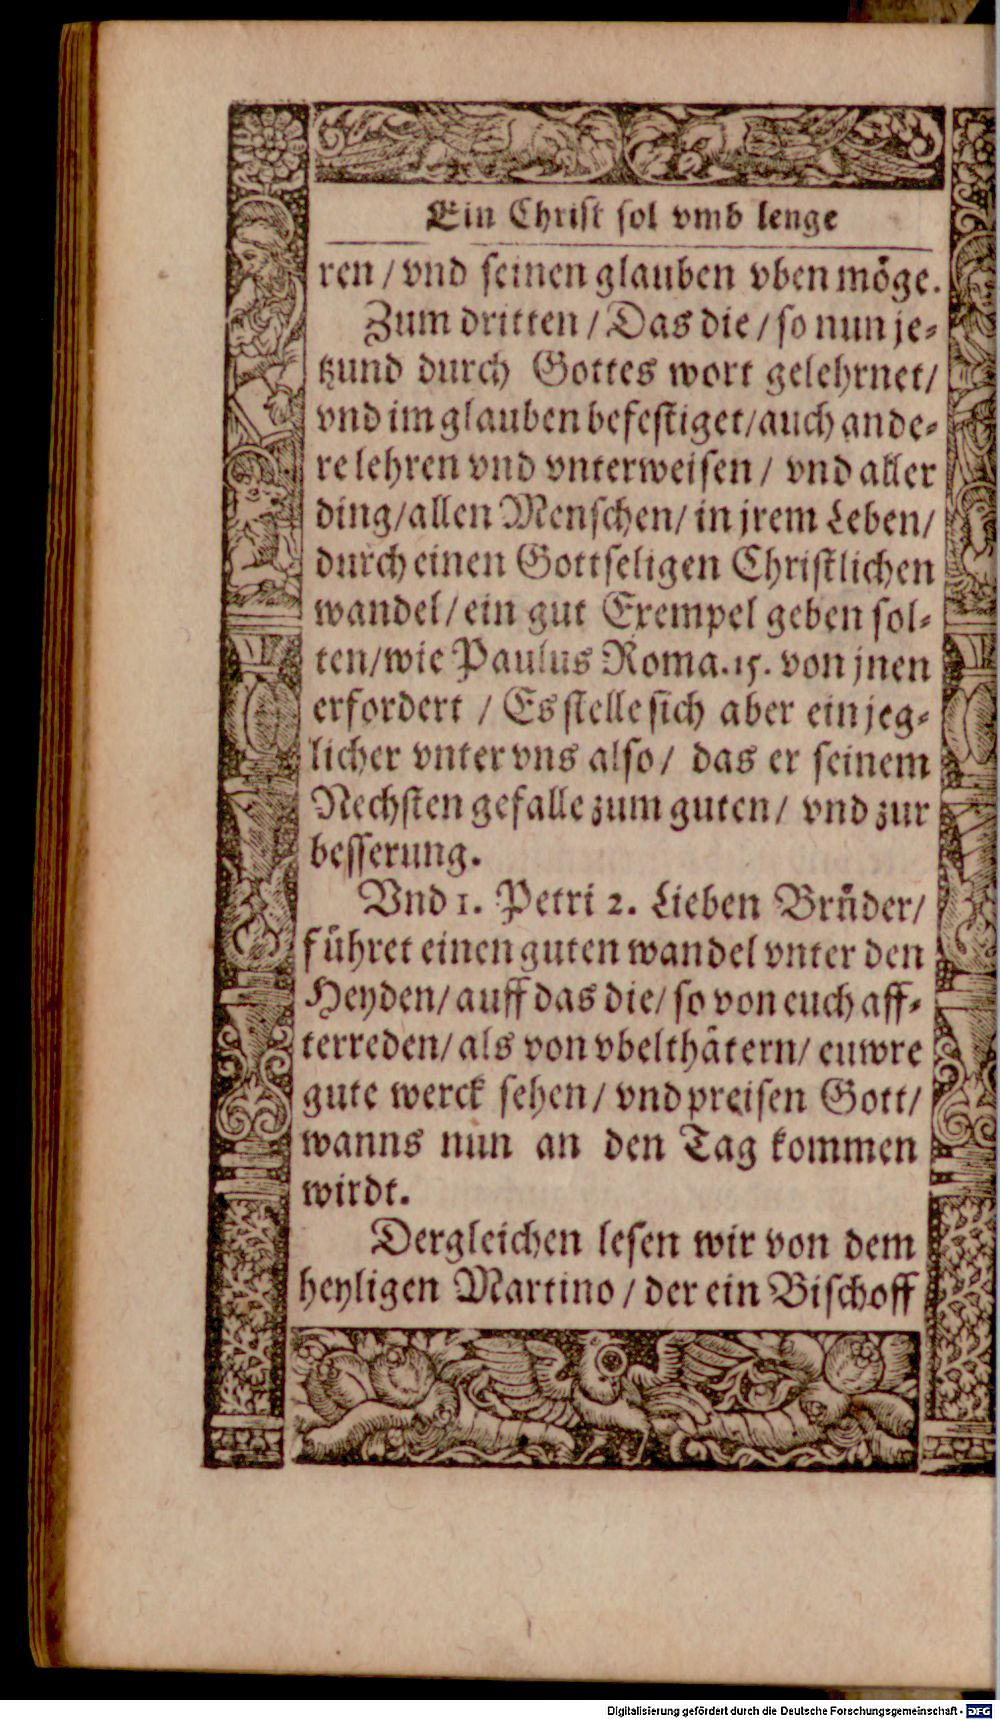 Ein Christ sol vmb lenge
ren / vnd seinen glauben vben möge.
Zum dritten / Das die / so nun je⸗
tzund durch Gottes wort gelehrnet/
vnd im glauben befestiget/auch ande⸗
re lehren vnd vnterweisen / vnd aller
ding/allen Menschen/ in jrem Leben/
durch einen Gottseligen Christlichen
wandel/ein gut Exempel geben sol⸗
ten/wie Paulus Roma.15. von jnen
erfordert / Es stelle sich aber ein jeg⸗
licher vnter vns also/ das er seinem
Nechsten gefalle zum guten/ vnd zur
besserung.
Vnd 1. Petri 2. Lieben Brůder/
fůhret einen guten wandel vnter den
Heyden/auff das die/so von euch aff⸗
terreden/als von vbelthätern/ euwre
gute werck sehen/ vnd preisen Gott/
wanns nun an den Tag kommen
wirdt.
Dergleichen lesen wir von dem
heyligen Martino / der ein Bischoff
Digitalisierung gefördert durch die Deutsche Forschungsgemeinschaft - DFG